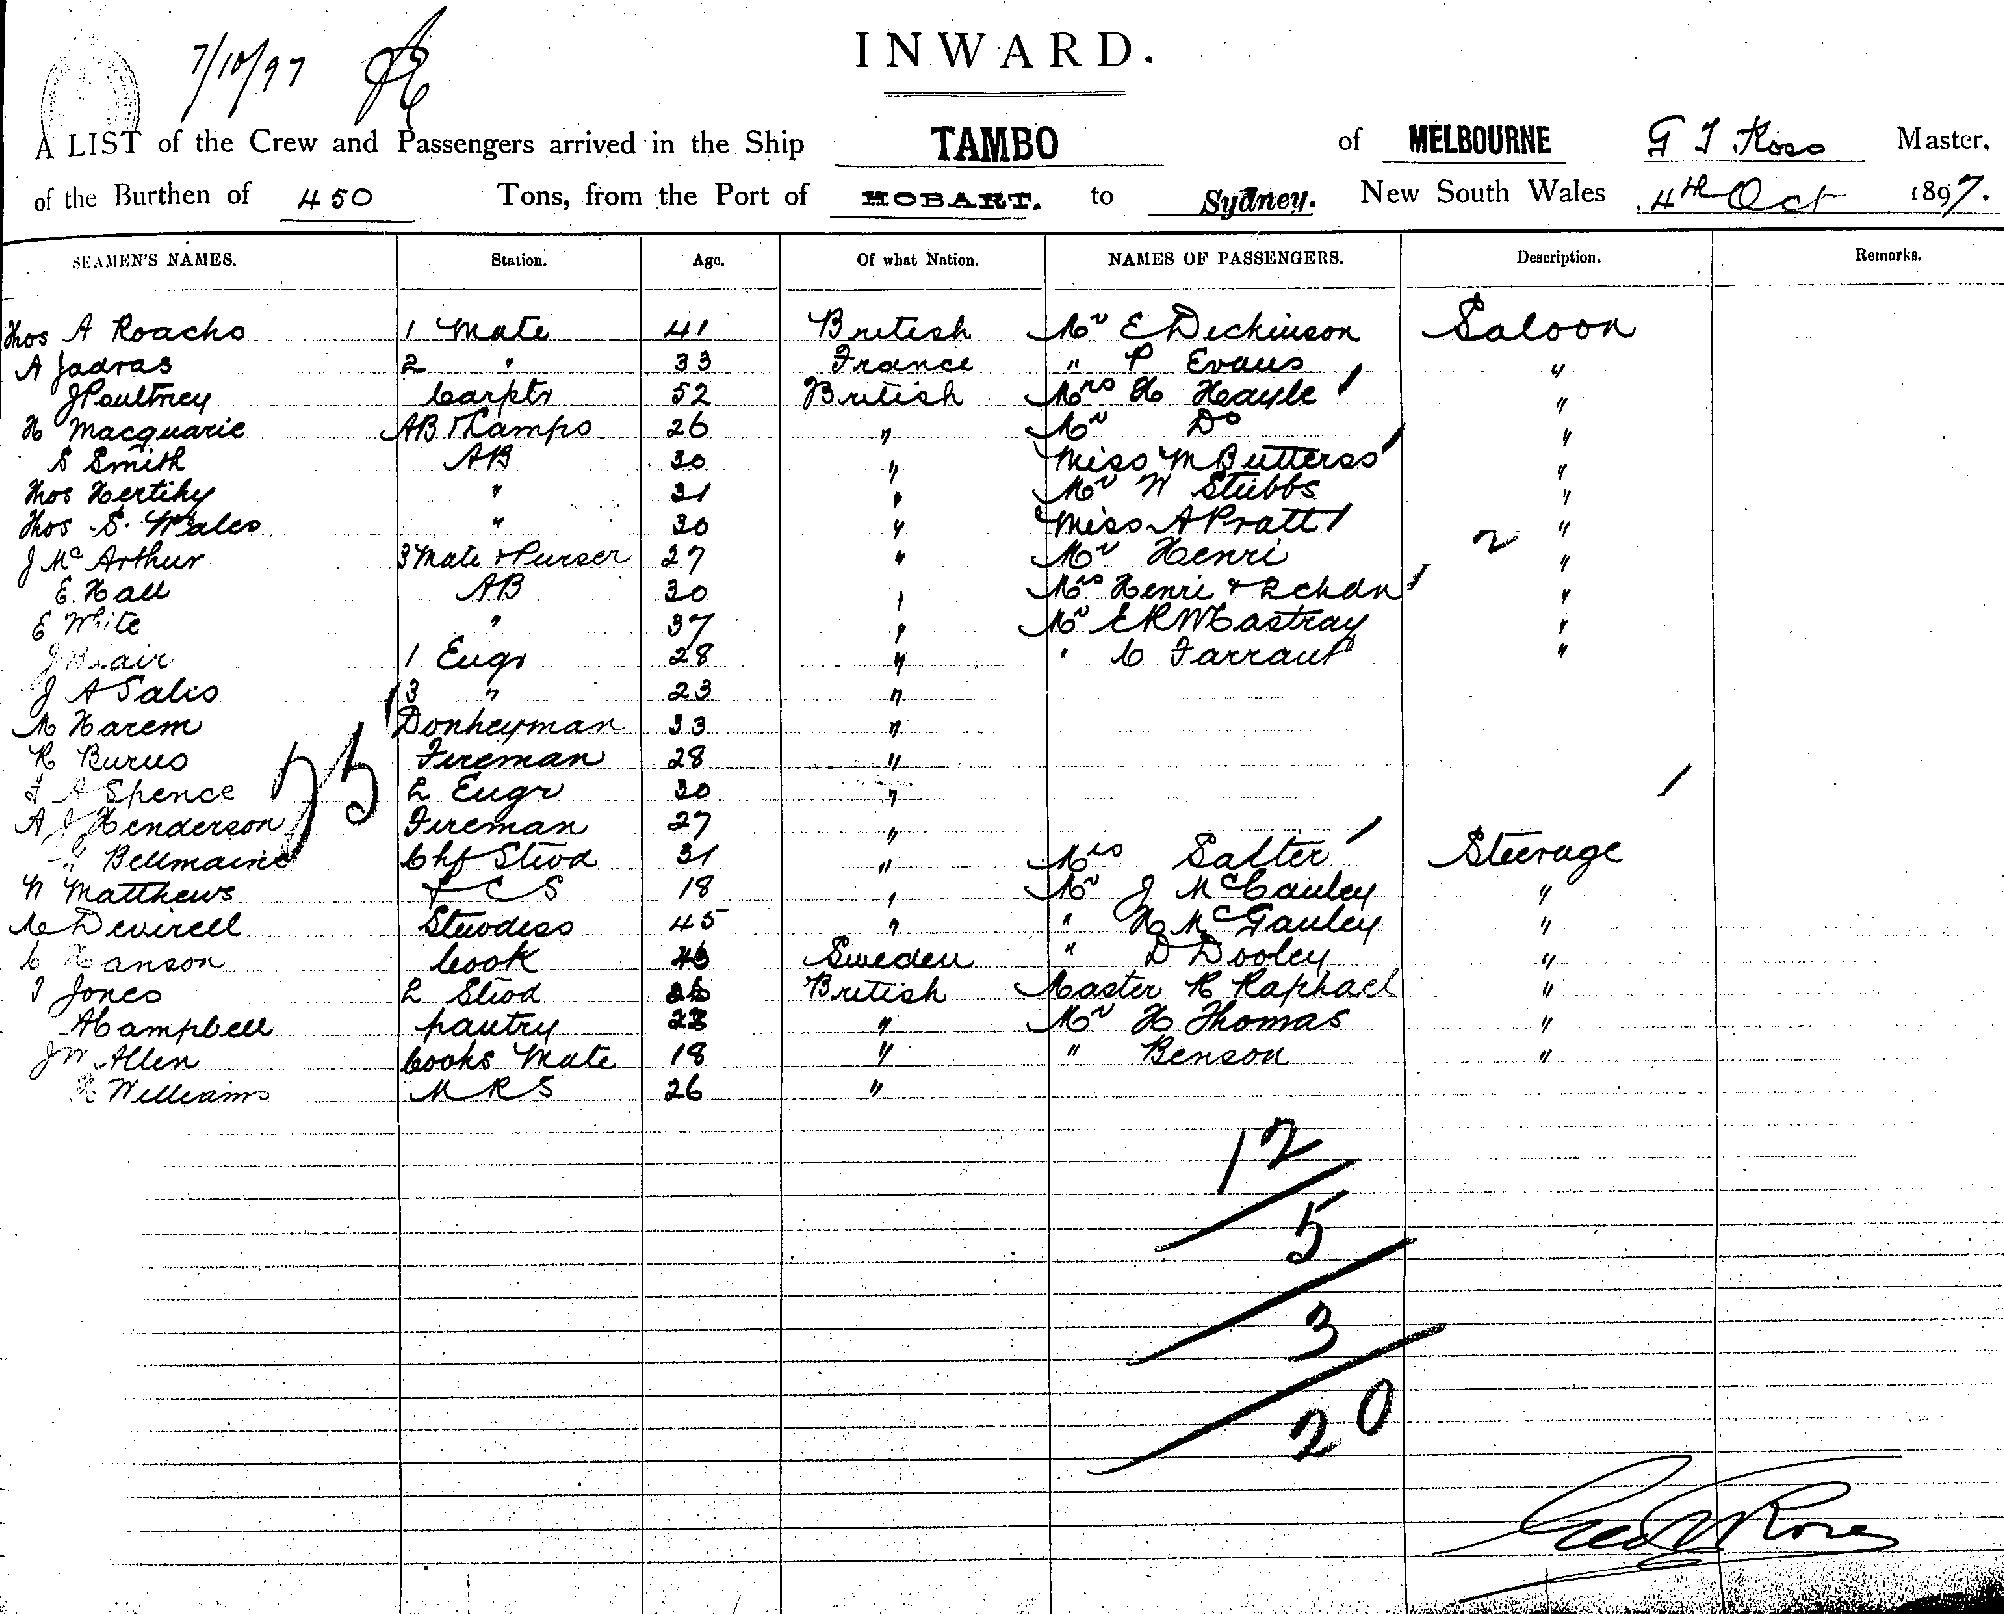 7/10/97
INWARD.
A LIST of the Crew and Passengers arrived in the Ship TAMBO of MELBOURNE G T Ross Master,
of the Burthen of 450 Tons, from the Port of HOBART. to Sydney. New South Wales 4th Oct 1897.
SEAMEN'S NAMES. Station. Age. Of what Nation. NAMES OF PASSENGERS. Description. Remarks.
Thos A Roacho 1 Mate 41 British Mr E Dickinson Saloon
A Jadras 2 " 33 France " P Evans "
J Poultney Carptr 52 British Mrs H Hayle "
H Macquarie AB & Lamps 26 " Mr Do "
S Smith AB 30 " Miss M Butterss "
Thos Hertihy " 31 " Mr W Stubbs "
Thos S. Wales " 30 " Miss A Pratt "
J McArthur 3 Mate & Purser 27 " Mr Henri 2 "
E. Hall AB 30 " Mrs Henri & 2 chdn "
E White " 37 " Mr E R Mastray "
J Blair 1 Engr 28 " " C Farrant "
J A Sales 3 " 23 "
M Harem Donkeyman 33 "
R Burns Fireman 28 "
Spence 2 Engr 30 "
A J Henderson Fireman 27 "
Bellmaine Chf Stwd 31 " Mrs Salter Steerage
W Matthews F C S 18 " Mr J McCauley "
M Devirell Stwdess 45 " " H McGauley "
C Hanson Cook 43 Sweden " D Dooley "
T Jones 2 Stwd British Master R Raphael "
A Campbell pantry " Mr H Thomas "
J W Allen Cooks Mate 18 " " Benson "
R Williams M R S 26 "
12
5
3
20
Geo T Ross